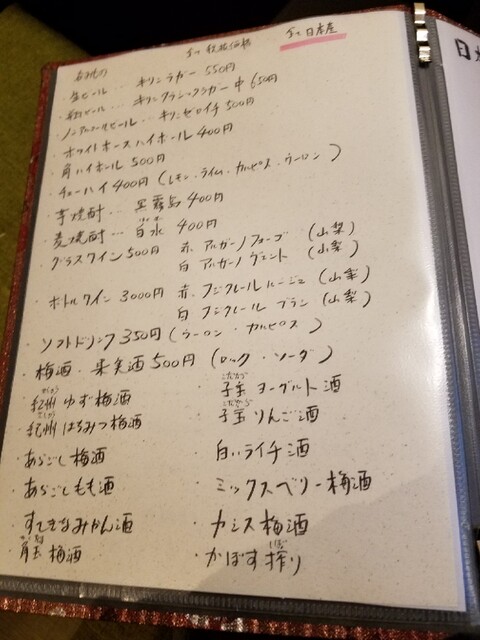 おのみもの 全て税抜価格 全て日本産
・生ビール … キリンラガー 550円
・瓶ビール … キリンクラシックラガー 中 650円
・ノンアルコールビール … キリンゼロイチ 500円
・ホワイトホースハイボール 400円
・角ハイボール 500円
・チューハイ 400円 (レモン・ライム・カルピス・ウーロン)
・芋焼酎 … 黒霧島 400円
・麦焼酎 … 白水 400円
・グラスワイン 500円 赤 アルガーノフォーゴ (山梨)
白 アルガーノヴェント (山梨)
・ボトルワイン 3000円 赤 フジクレールルージュ (山梨)
白 フジクレールブラン (山梨)
・ソフトドリンク 350円 (ウーロン・カルピス)
・梅酒・果実酒 500円 (ロック・ソーダ)
・紀州ゆず梅酒 ・子宝ヨーグルト酒
・紀州はちみつ梅酒 ・子宝りんご酒
・あらごし梅酒 ・白いライチ酒
・あらごしもも酒 ・ミックスベリー梅酒
・すてきなみかん酒 ・カシス梅酒
・梅酒 ・かぼす搾り
日